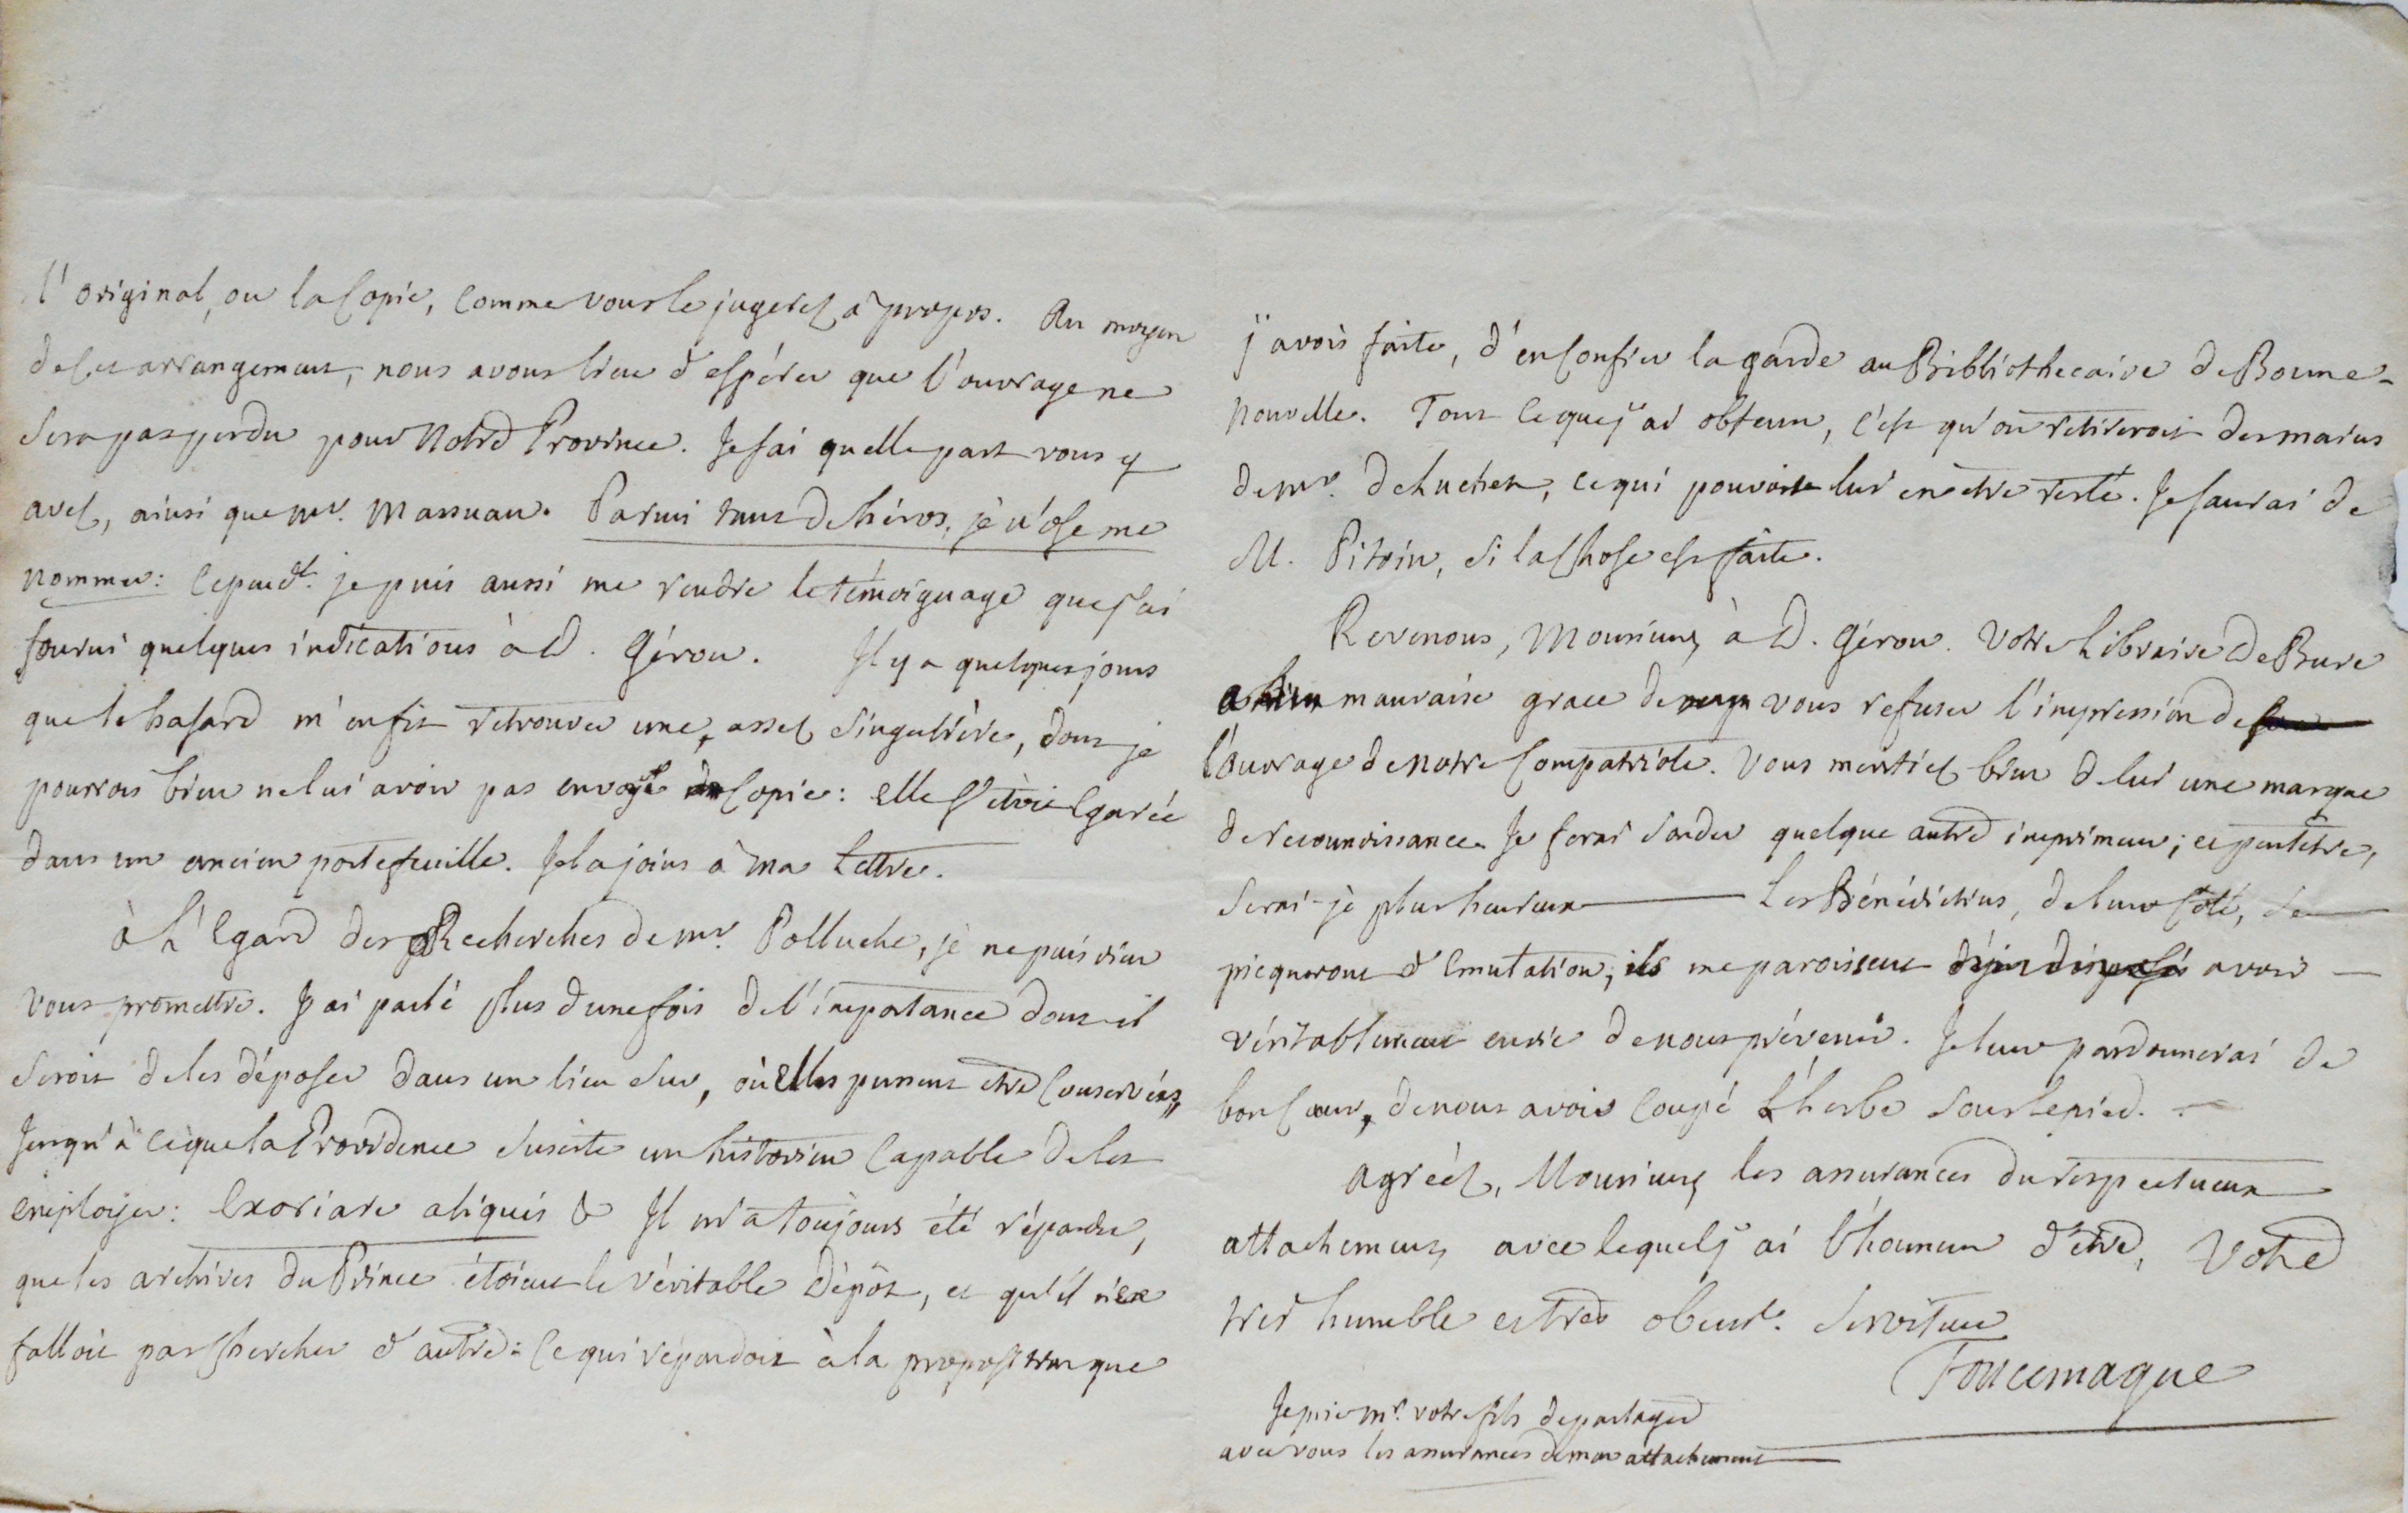 l'original, ou la Copie, comme vous le jugerez à propos. Au moyen
de cet arrangement, nous avons lieu d'espérer que l'ouvrage ne
sera pas perdu pour Notre Province. Je sai quelle part vous y
avez, ainsi que mr. Massuau. Parmi tant de héros, je n'ose me
nommer: Cepend.t je puis aussi me rendre le témoignage que j'ai
fourni quelques indications à D. Gérou. Il y a quelques jours
que le hasard m'en fit retrouver une, assez singulière, dont je
pourrois bien ne lui avoir pas envoyé Copie: elle s'étoit égarée
dans un ancien portefeuille. Je la joins à ma Lettre.
à L'Egard des Recherches de mr. Polluche, je ne puis rien
vous promettre. J'ai parlé plus d'une fois de l'importance dont il
seroit de les déposer dans un lieu sur, où Elles pussent etre Conservées,
Jusqu'à ce que la Providence suscite un historien Capable de les
employer: Exoriare aliquis & Il m'a toujours été répondu,
que les archives du Prince étoient le véritable Dépôt, et qu'il n'en
falloit pas chercher d'autre: Ce qui répondoit à la proposition que
j'avois faite, d'en Confier la garde au Bibliothecaire de Bonne-
Nouvelle. Tout ce que j'ai obtenu, c'est qu'on retireroit des mains
de mr. de Luchet, ce qui pouvoit lui en être resté. Je saurai de
M. Pitoin, si la Chose est faite.
Revenons, Monsieur, à D. Gérou. Votre Libraire De Bure
a bien mauvaise grace de vous refuser l'impression de
l'ouvrage de notre Compatriote. Vous meritiez bien de lui une marque
de reconnoissance. Je ferai sonder quelque autre imprimeur; et peutetre,
serai-je plus heureux — Les Bénédictins, de leur Côté, se
picqueront d'Emulation; ils me paroissent avoir —
véritablement envie de nous prévenir. Je leur pardonnerai de
bon Cœur, de nous avoir Coupé L'herbe sous le pied. —
Agréez, Monsieur, les assurances du respectueux
attachement, avec lequel j'ai l'honneur d'etre, Votre
tres humble et tres obeisst. Serviteur
Foncemagne
Je prie mr. votre fils de partager
avec vous les assurances de mon attachement